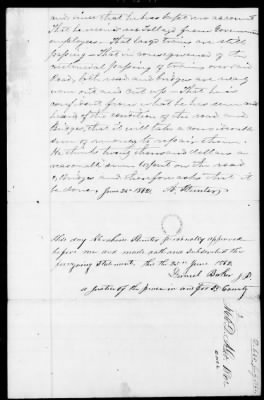 and since that he has kept no account
That he receives no toll from Government
employees. That large trains are still
passing — That in consequence of the
continual passing of trains over said
Road, both road and bridges are nearly
worn out and cut up — That he is
confident from what he has seen and
heard of the condition of the road and
Bridges, that it will take a considerable
sum of money to repair them.
He thinks twenty thousand dollars a
reasonable sum to put on the road
& Bridges and therefore asks that it
be done, June 25th 1862 A. Hunter
This day Abraham Hunter personally appeared
before me and made oath and subscribed the
foregoing statement this the 25th June 1862
Baker J.P.
a justice of the peace in and for County